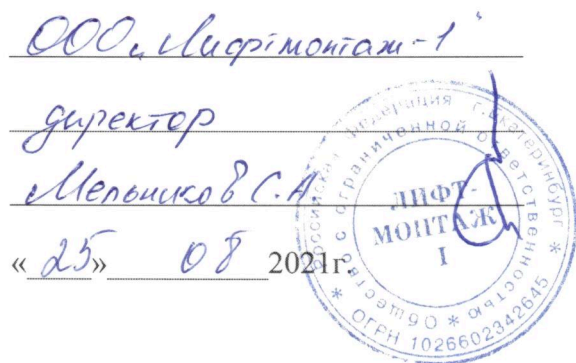 ООО „Лифтмонтаж-1"
директор
Мельников С.А
«25» 08 2021г.
Российская Федерация г.Екатеринбург
* Общество с ограниченной ответственностью *
ЛИФТ-
МОНТАЖ
I
ОГРН 1026602342645